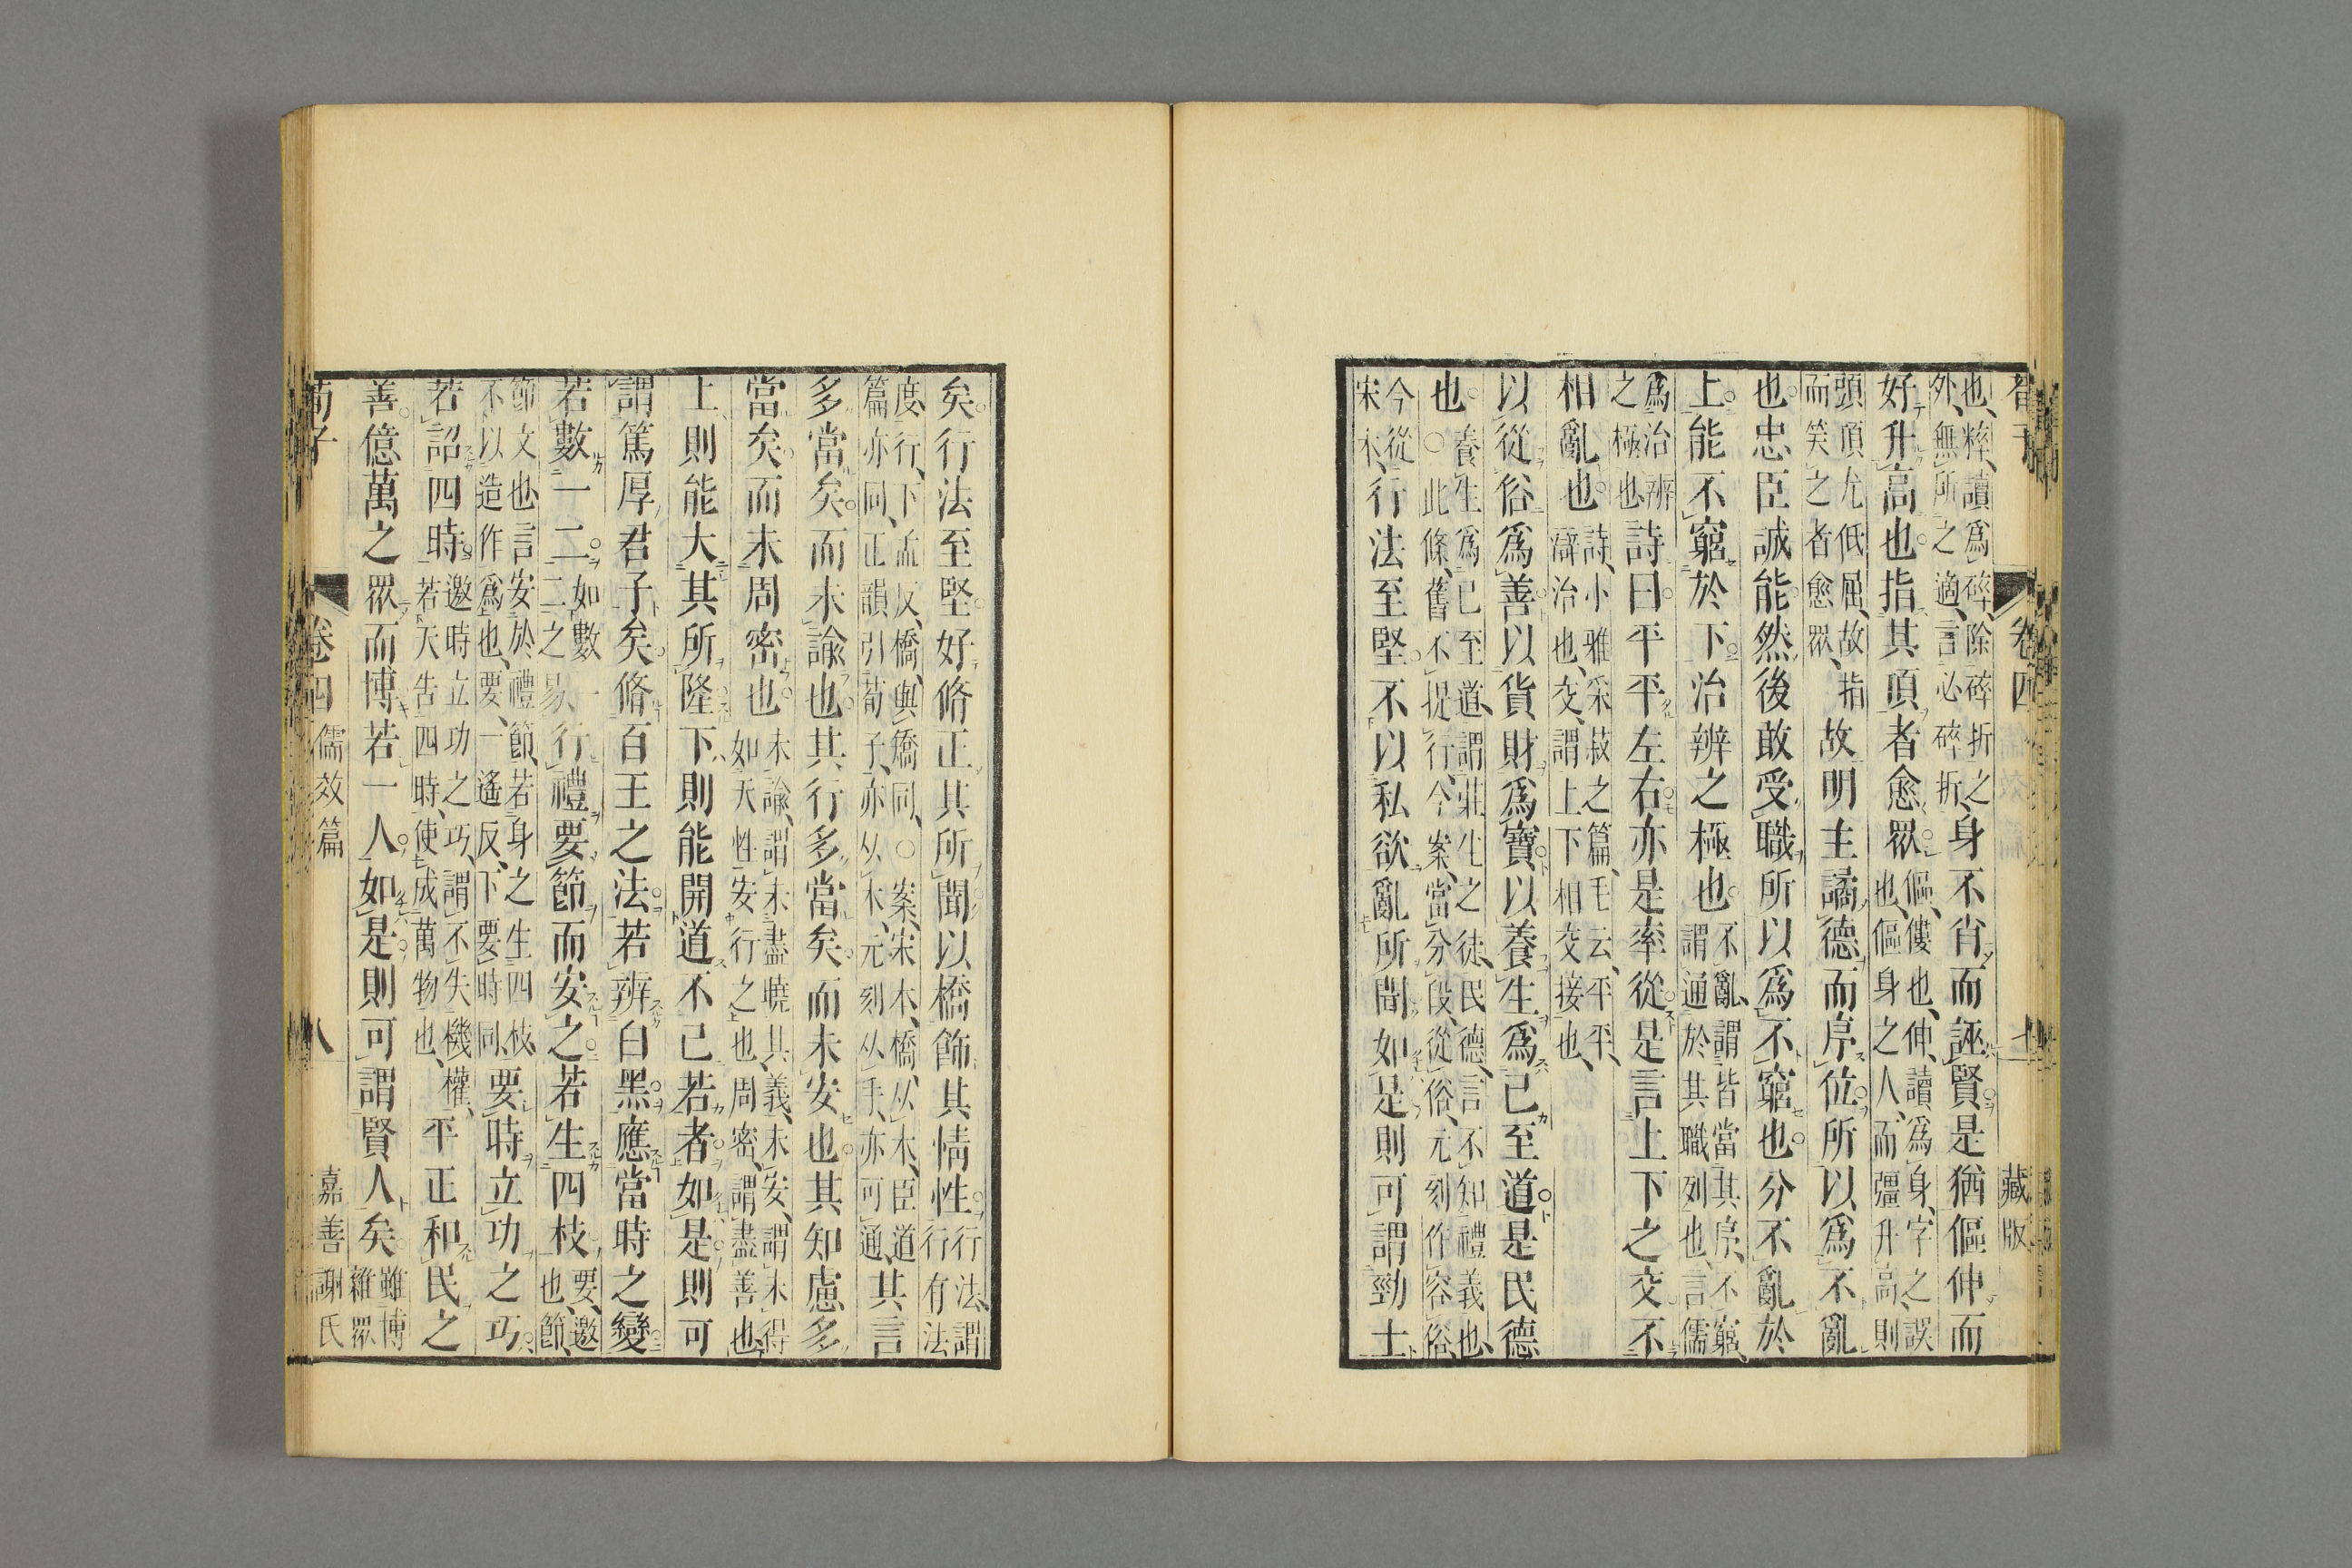 也、粹、讀爲碎、除碎折之、
外、無所之適、言必碎折、
身不肖而誣賢是猶傴伸而
好升高也指其頂者愈眾
傴、僂也、伸、讀爲身、字之誤
也、傴身之人、而彊升高、則
頭頂尤低屈、故指
而笑之者愈眾、
故明主譎德而序位所以爲不亂
也忠臣誠能然後敢受職所以爲不窮也分不亂於
上能不窮於下治辨之極也
不亂、謂皆當其序、不窮、
謂通於其職列也、言儒
爲治辨
之極也
詩曰平平左右亦是率從是言上下之交不
相亂也
詩、小雅采菽之篇、毛云、平平、
辯治也、交、謂上下相交接也、
以從俗爲善以貨財爲寶以養生爲己至道是民德
也
養生爲己至道、謂莊生之徒、民德、言不知禮義也、
○此條、舊不提行、今案、當分段、從俗、元刻作容俗、
今從
宋本、
行法至堅不以私欲亂所聞如是則可謂勁士
矣行法至堅好脩正其所聞以橋飾其情性
行法、謂
行有法
度、行、下孟反、橋、與矯同、○案、宋本、橋、从木、臣道
篇亦同、正韻引荀子、亦从木、元刻从手、亦可通、
其言
多當矣而未諭也其行多當矣而未安也其知慮多
當矣而未周密也
未諭、謂未盡曉其義、未安、謂未得
如天性安行之也、周密、謂盡善也、
上則能大其所隆下則能開道不已若者如是則可
謂篤厚君子矣脩百王之法若辨白黑應當時之變
若數一二
如數一
二之易、
行禮要節而安之若生四枝
要、邀
也、節、
節文也、言安於禮節、若身之生四枝、
不以造作爲也、要、一遙反、下要時同、
要時立功之巧
若詔四時
邀時立功之巧、謂不失機權、
若天告四時、使成萬物也、
平正和民之
善億萬之眾而博若一人如是則可謂賢人矣
雖博
雜眾
荀子 卷四 儒效篇 八 嘉善謝氏